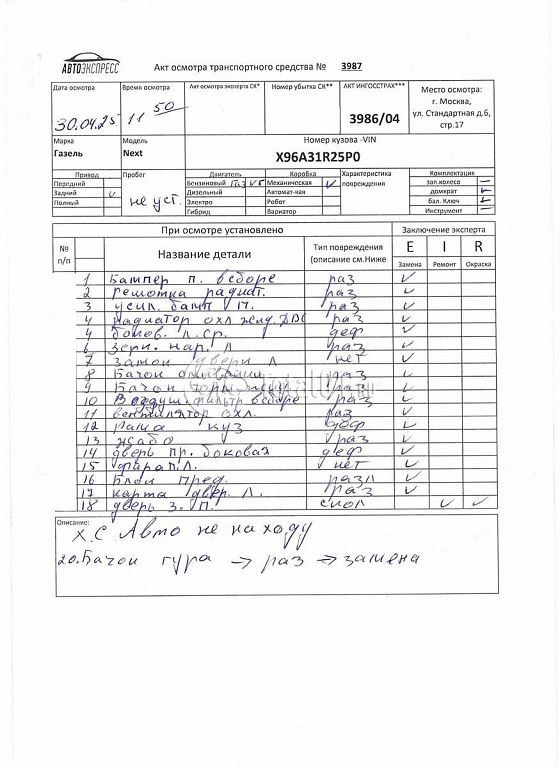 АВТОЭКСПРЕСС
Акт осмотра транспортного средства № 3987
Дата осмотра Время осмотра Акт осмотра эксперта СК* Номер убытка СК** АКТ ИНГОССТРАХ*** Место осмотра:
30.04.25 11 50 3986/04 г. Москва,
ул. Стандартная д.6,
стр.17
Марка Модель Номер кузова -VIN
Газель Next X96A31R25P0
Привод Пробег Двигатель Коробка Характеристика повреждения Комплектация
Передний Бензиновый газ v Механическая v зап.колесо –
Задний v не уст. Дизельный Автомат-кая домкрат v
Полный Электро Робот бал. Ключ v
Гибрид Вариатор Инструмент –
При осмотре установлено Заключение эксперта
№ п/п Название детали Тип повреждения (описание см.Ниже E I R
Замена Ремонт Окраска
1 Бампер п. в сборе раз v
2 решотка радиат. раз v
3 усил. бамп п. раз v
4 радиатор охл жид. ДВС раз v
4 боков. л.ср. деф v
6 зерк. нар. Л раз v
7 замок двери Л нет v
8 Бачок раз v
9 Бачок торм. жид. раз v
10 Воздуш. фильтр в сборе раз v
11 вентилятор охл. раз v
12 рама куз деф v
13 жабо раз v
14 дверь пр. боковая деф v
15 фара п.Л. нет v
16 Блок пред. разл v
17 карта двер. Л. раз v
18 дверь з. П. скол v v
Описание:
Х.С Авто не на ходу
20. Бачок гура → раз → замена